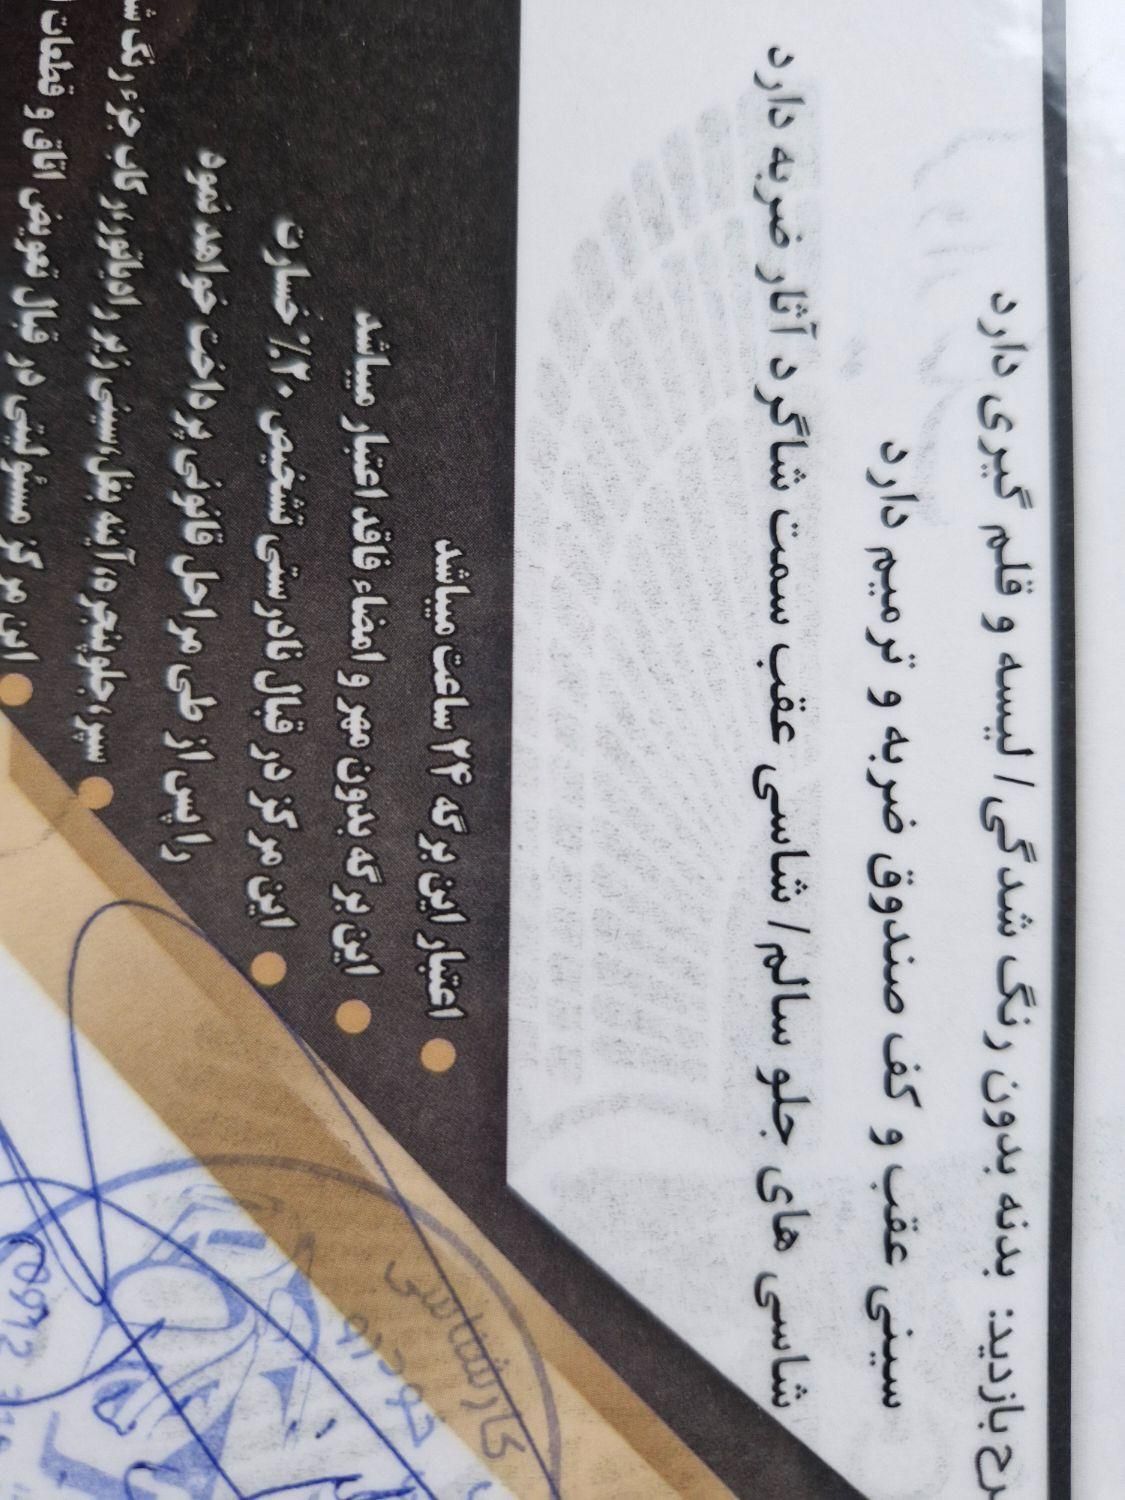 شرح بازدید: بدنه بدون رنگ شدگی / لیسه و قلم گیری دارد
سینی عقب و کف صندوق ضربه و ترمیم دارد
شاسی های جلو سالم / شاسی عقب سمت شاگرد آثار ضربه دارد
اعتبار این برگه ۲۴ ساعت میباشد
این برگه بدون مهر و امضاء فاقد اعتبار میباشد
این مرکز در قبال نادرستی تشخیص ۲۰٪ خسارت
را پس از طی مراحل قانونی پرداخت خواهد نمود
سپر، جلوپنجره، آینه بغل، سینی زیر رادیاتور، از کاپ جزء رنگ
این مرکز مسئولیتی در قبال تعویض اتاق و قطعات
کارشناسی
خودرو
0912